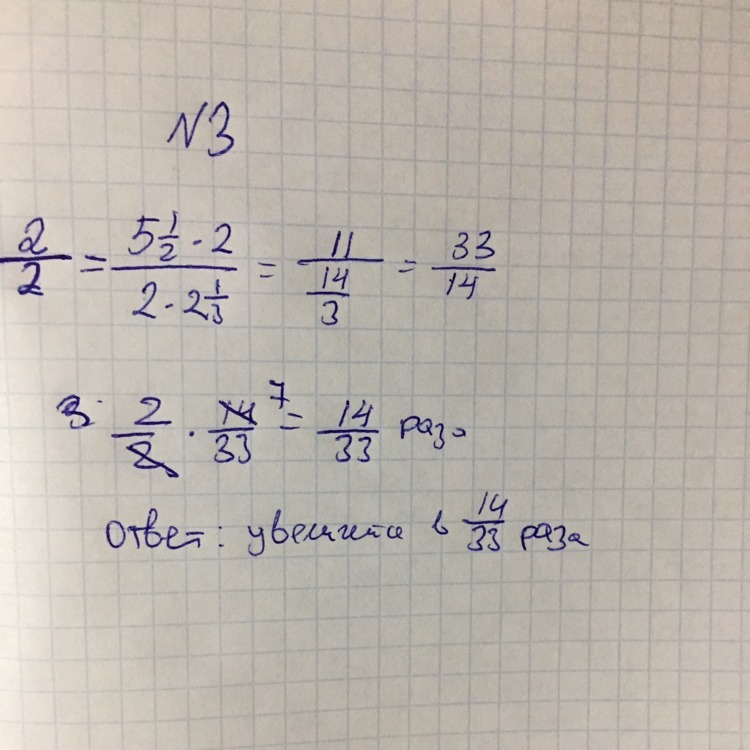 N3
2/2 = (5 1/2 · 2)/(2 · 2 1/3) = 11/(14/3) = 33/14
2/2 · 14/33 7 = 14/33 раза
Ответ: увеличится в 14/33 раза